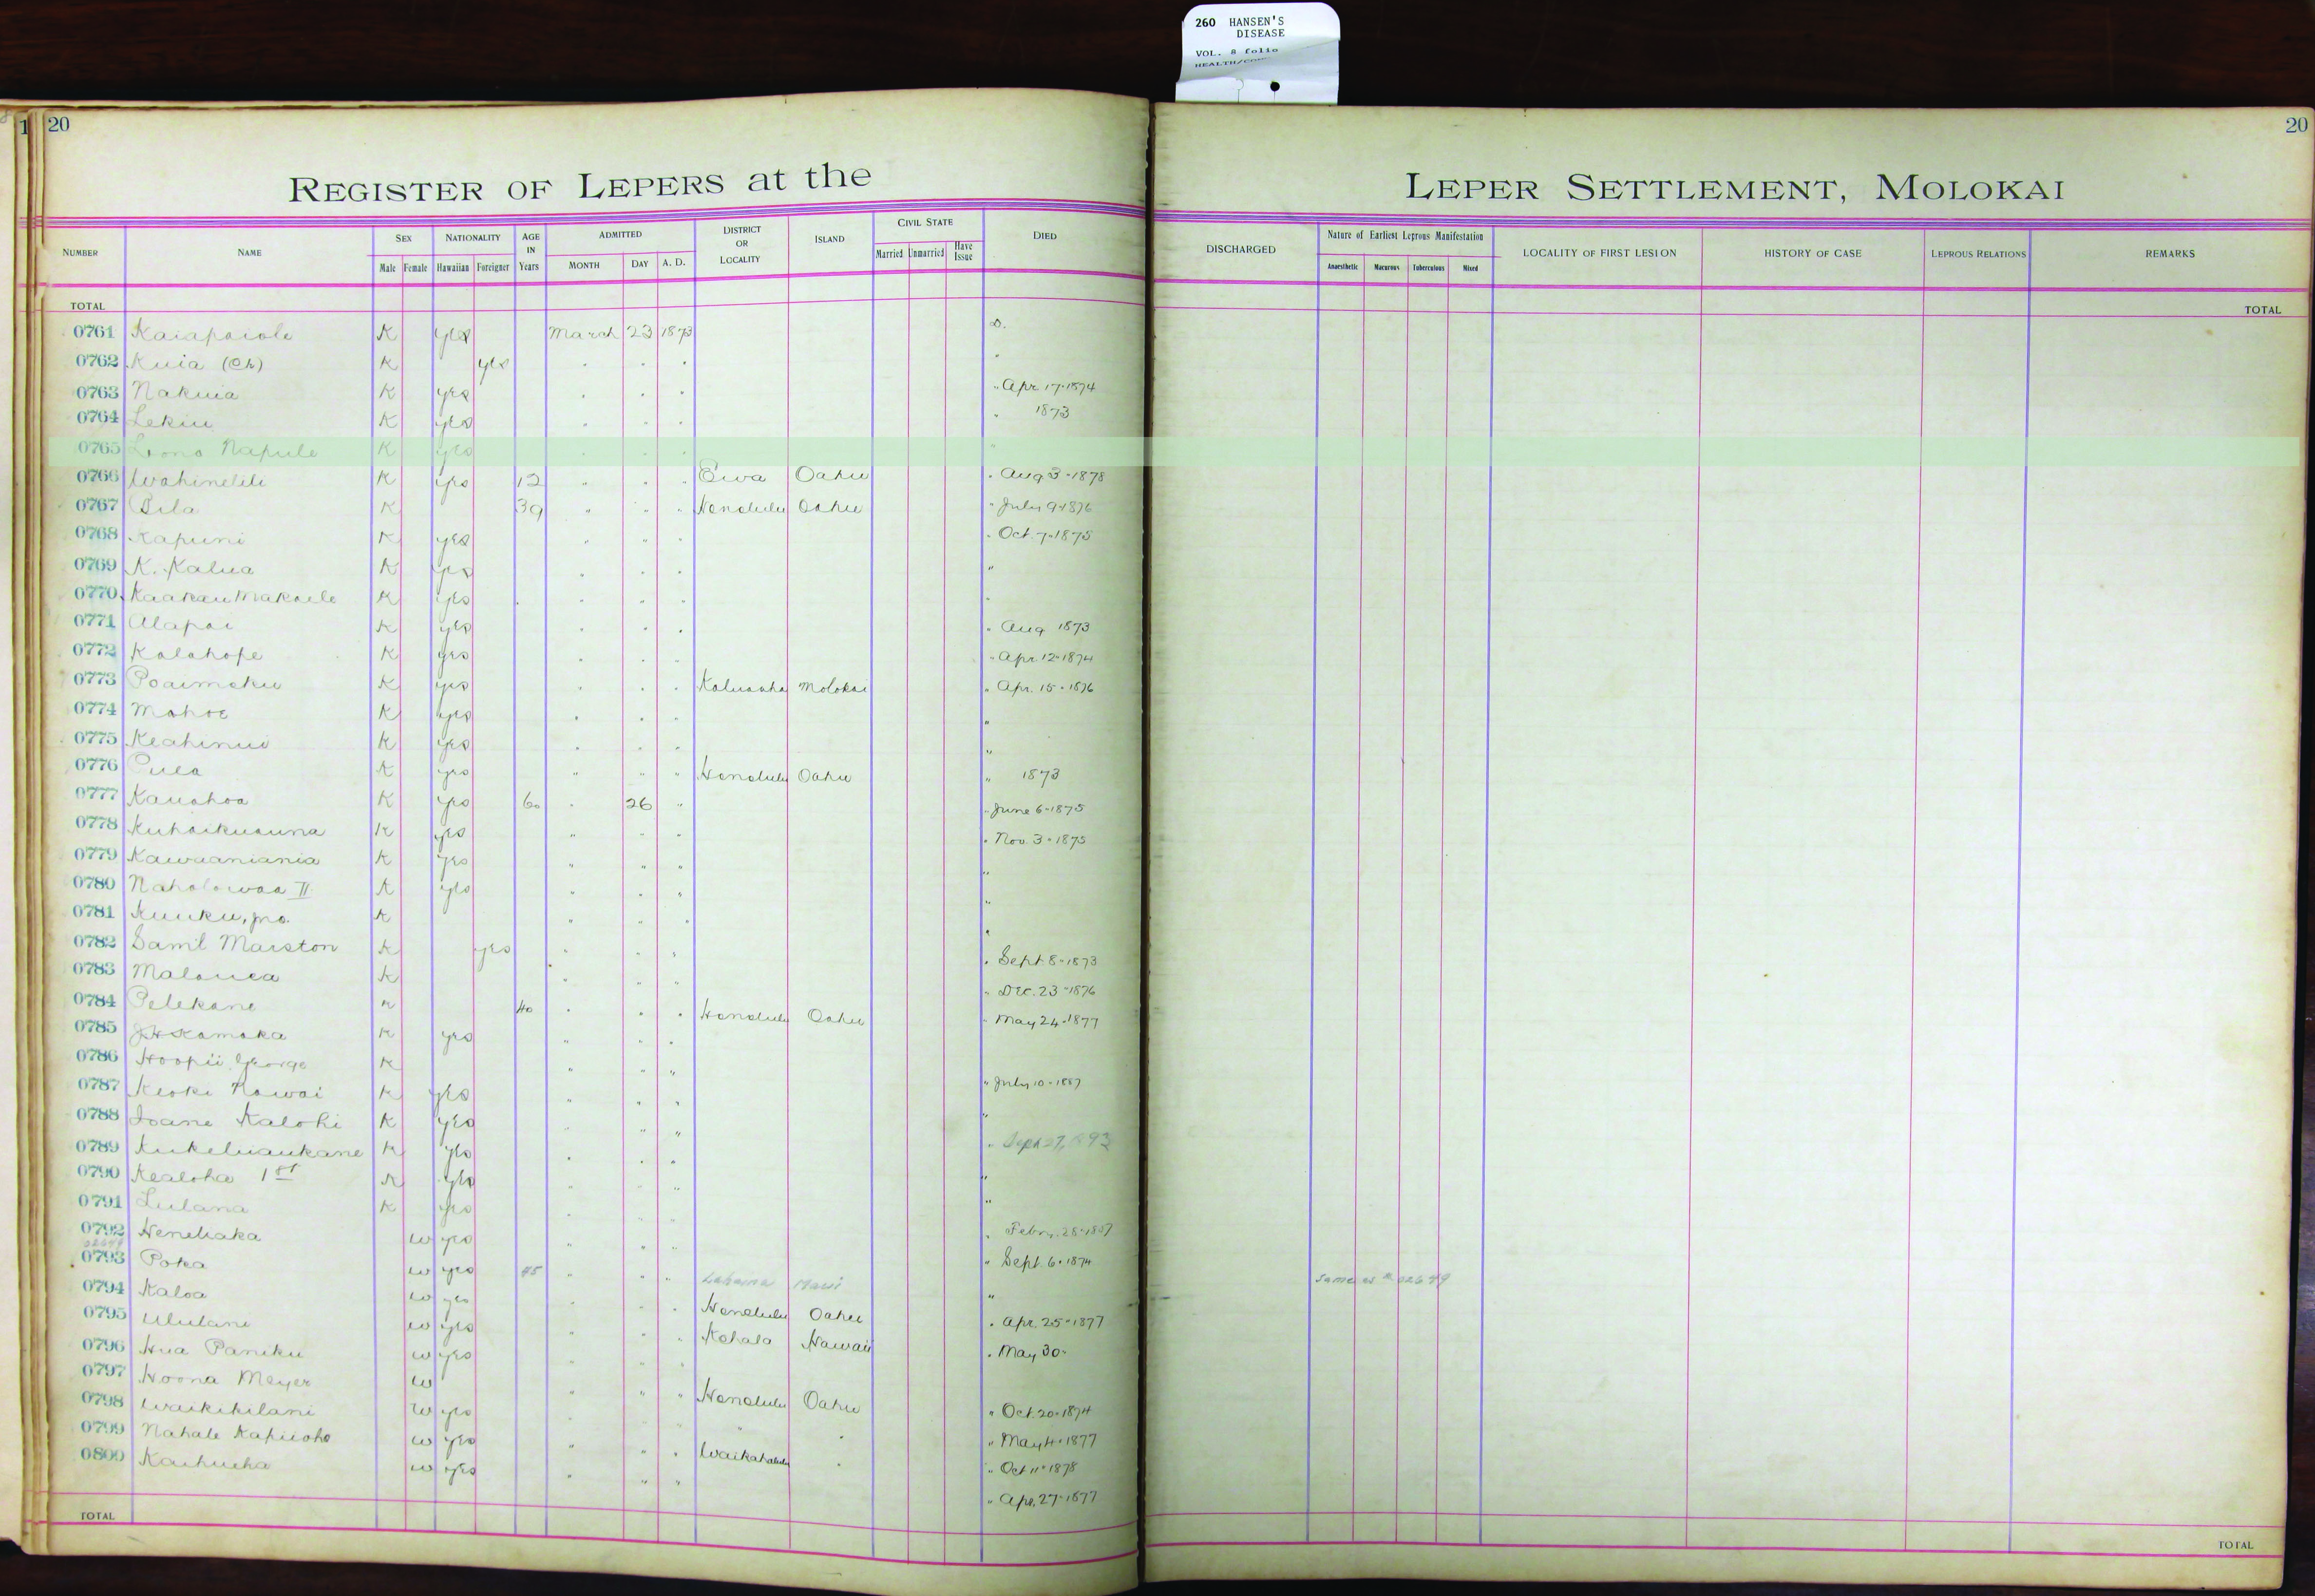 260 HANSEN'S
DISEASE
VOL. 8 folio
20
20
REGISTER OF LEPERS at the LEPER SETTLEMENT, MOLOKAI
NUMBER NAME SEX NATIONALITY AGE IN Years ADMITTED DISTRICT OR LOCALITY ISLAND CIVIL STATE DIED DISCHARGED Nature of Earliest Leprous Manifestation LOCALITY OF FIRST LESION HISTORY OF CASE LEPROUS RELATIONS REMARKS
Male Female Hawaiian Foreigner MONTH DAY A. D. Married Unmarried Have Issue Anaesthetic Macurous Tuberculous Mixed
TOTAL TOTAL
0761 Kaiapaiole K yes March 23 1873 D.
0762 Kuia (Ch) K yes " " " "
0763 Nakuia K yes " " " " Apr 17-1874
0764 Lekiu K yes " " " " 1873
0765 Lono Napule K yes "
0766 Wahinelili K yes 12 " " " Ewa Oahu " Aug 3-1878
0767 Pila K 39 " " " Honolulu Oahu " July 9-1876
0768 Kapuni K yes " " " " Oct. 7-1875
0769 K. Kalua K yes " " " "
0770 Kaakau Makaele K yes " " " "
0771 Alapai K yes " " " " Aug 1873
0772 Kalahope K yes " " " " Apr. 12-1874
0773 Poaimoku K yes " " " Kaluaaha Molokai " Apr. 15-1876
0774 Mahoe K yes " " " "
0775 Keahinui K yes " " " "
0776 Pula K yes " " " Honolulu Oahu " 1873
0777 Kauahoa K yes 60 " 26 " " June 6-1875
0778 Kuhaikuauna K yes " " " " Nov. 3-1875
0779 Kawaaniania K yes " " " "
0780 Naholowaa II K yes " " " "
0781 Kuuku, jno. K " " " "
0782 Saml Marston K yes " " " " Sept 8-1873
0783 Malanea K " " " " Dec. 23-1876
0784 Pelekane K 40 " " " Honolulu Oahu " May 24-1877
0785 J H Kamaka K yes " " "
0786 Hoopii George K " " " " July 10-1887
0787 Keoki Nawai K yes " " " "
0788 Ioane Kalohi K yes " " " " Sept 27, 1893
0789 Kukeluaukane K yes " " " "
0790 Kealoha 1st K yes " " " "
0791 Lulana K yes " " " " Febr. 28-1887
0792 Henehaka W yes " " " " Sept. 6-1874
02649
0793 Poka W yes 45 " " " Lahaina Maui " Same as # 02649
0794 Kaloa W yes " " " Honolulu Oahu " Apr. 25-1877
0795 Ululani W yes " " " Kohala Hawaii " May 30-
0796 Hua Paniku W yes " " "
0797 Hoona Meyer W " " " Honolulu Oahu " Oct. 20-1874
0798 Waikikilani W yes " " " " " " May 4-1877
0799 Nahale Kapuioho W yes " " " Waikahalulu " " Oct 11-1878
0800 Kaihueha W yes " " " " Apr. 27-1877
TOTAL TOTAL